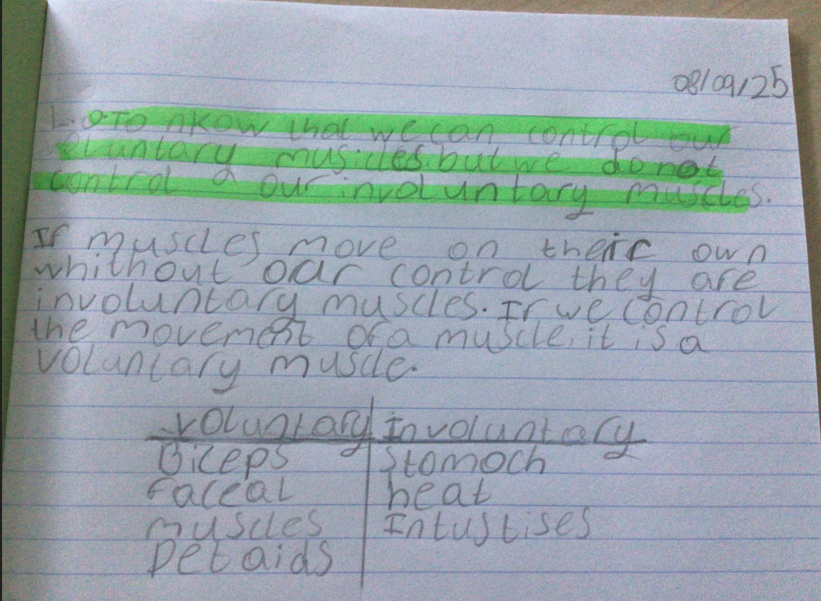 08/09/25
L.O To nkow that we can control our
voluntary musicles but we do not
control our involuntary muscles.
If muscles move on their own
whithout our control they are
involuntary muscles. If we control
the movement of a muscle, it is a
voluntary muscle.
voluntary Involuntary
Biceps Stomoch
Faceal heat
muscles Intustises
Detaids